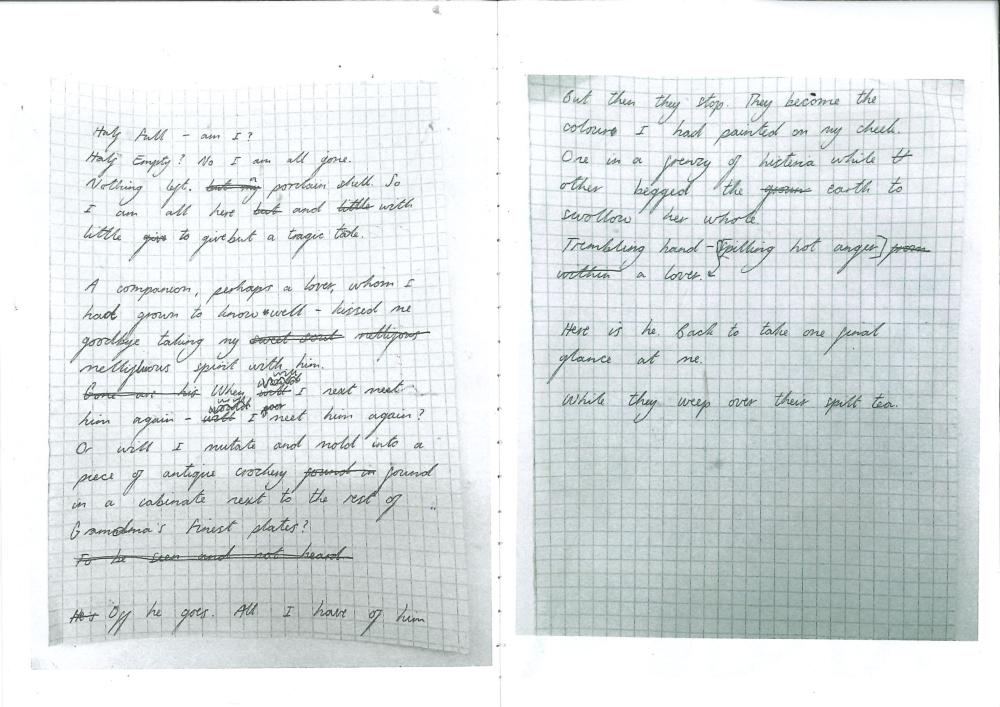 Half Full - am I?
Half Empty? No I am all gone.
Nothing left. but my porclain shell. So
I am all here but and little with
little give to give but a tragic tale.
A companion, perhaps a lover, whom I
had grown to know well - kissed me
goodbye taking my sweet soul mellifous
mellifluous spirit with him.
Gone are his When will I next meet
him again - will I meet him again?
Or will I mutate and mold into a
piece of antique crochery found in found
in a cabinate next to the rest of
Grandma's Finest plates?
To be seen and not heard
He's Off he goes. All I have of him
But then they stop. They become the
colours I had painted on my cheek.
One in a frenzy of histeria while
other begged the groun earth to
swollow her whole
Trembling hand - [spilling hot anger] from
within a lover
Here is he. Back to take one final
glance at me.
While they weep over their spilt tea.